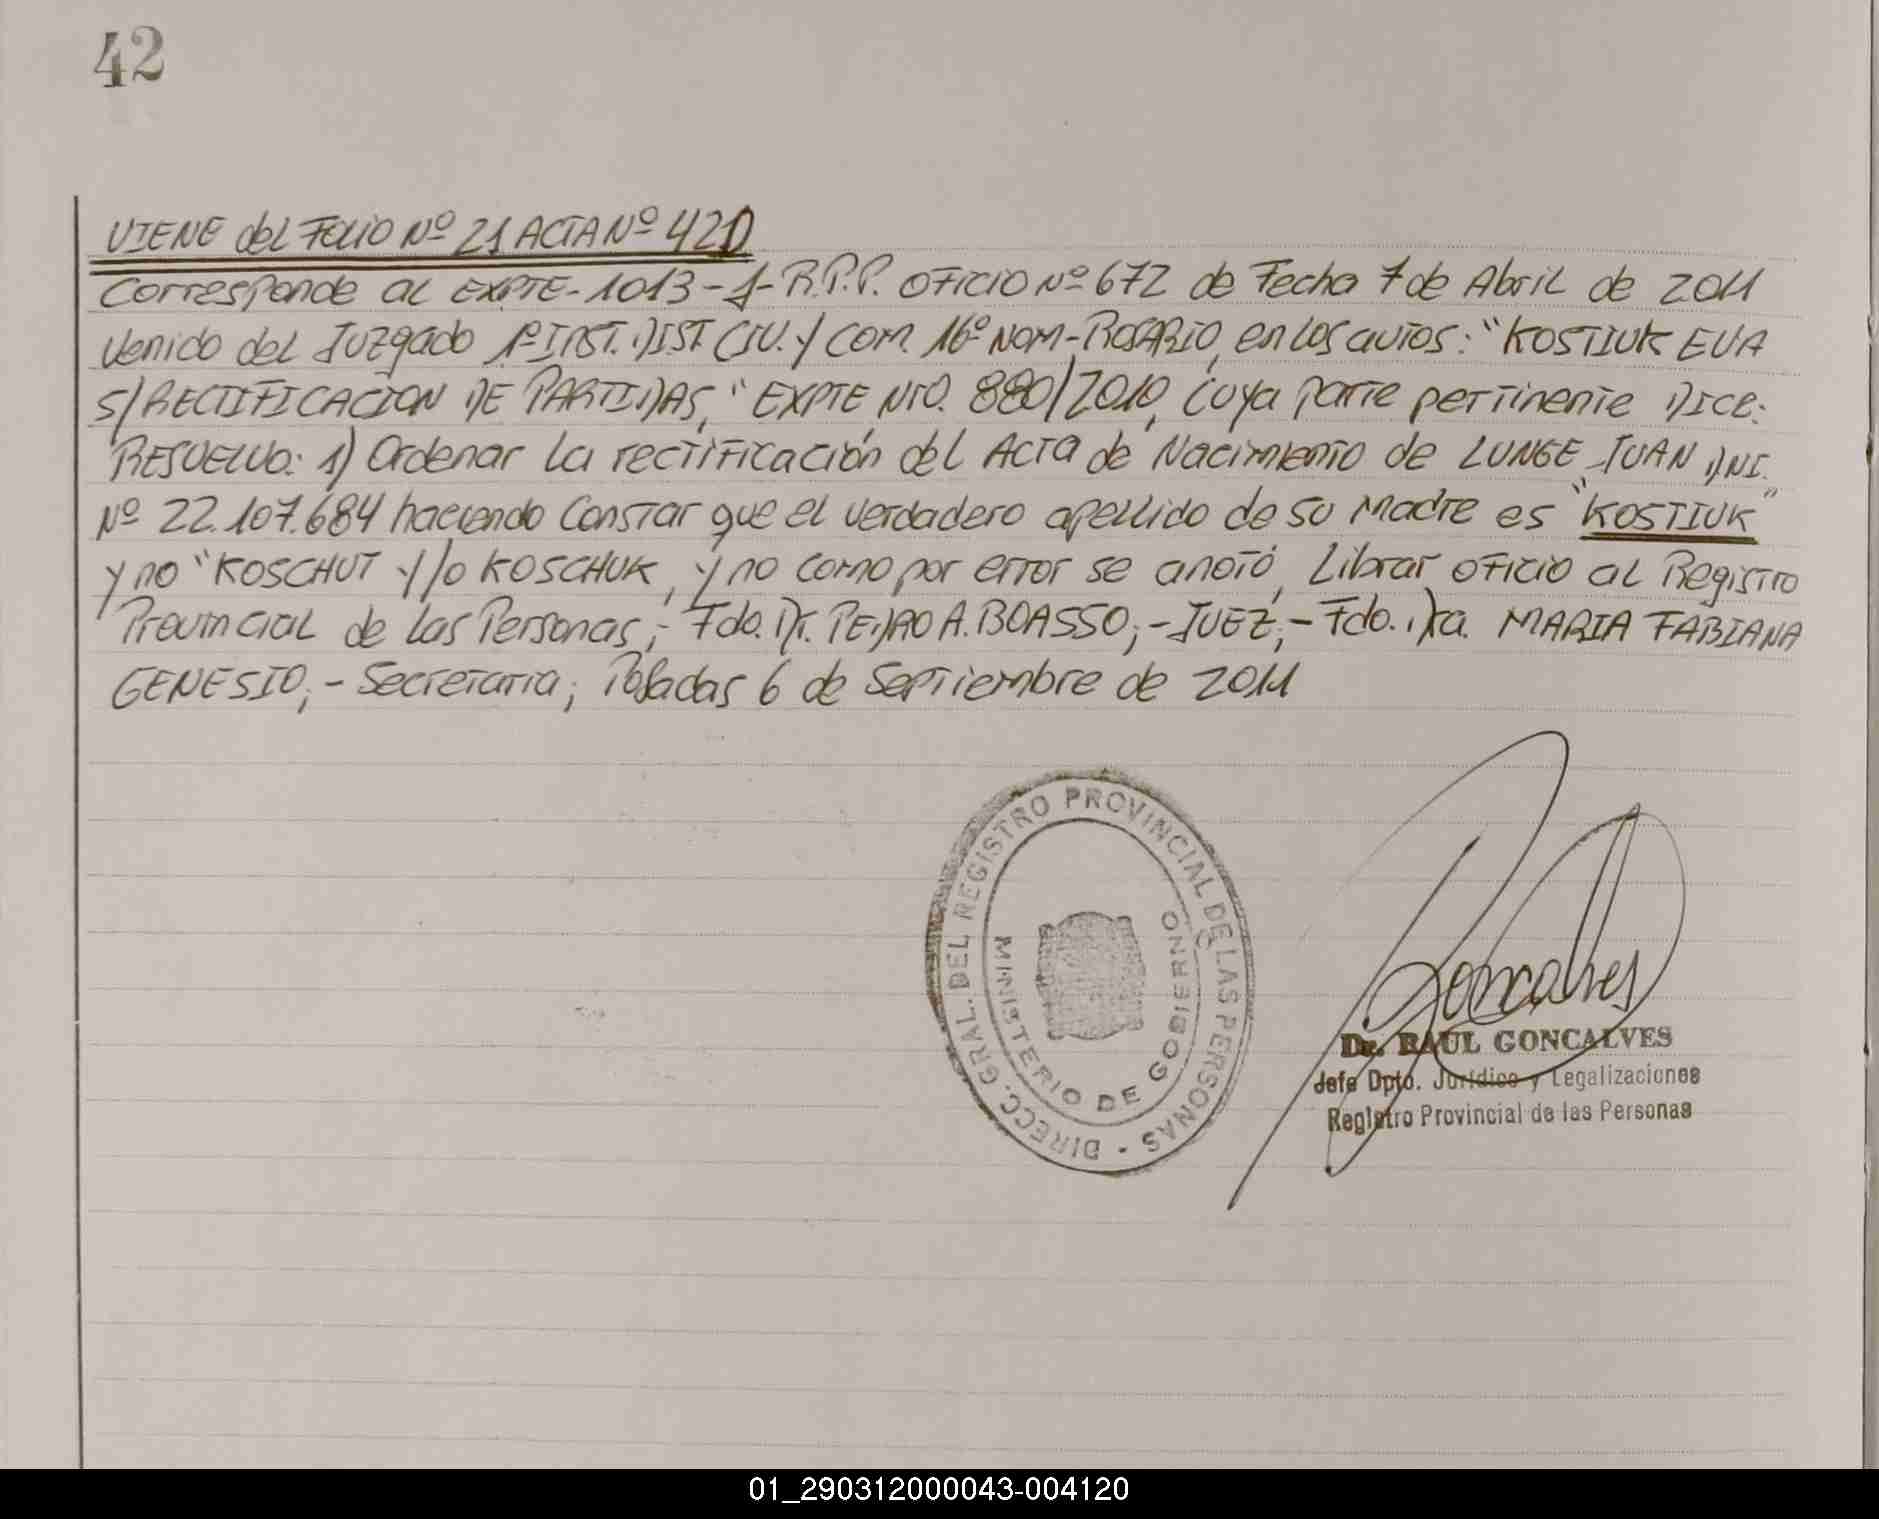 42
VIENE del FOLIO Nº 21 ACTA Nº 420
Corresponde al EXPTE-1013-J-R.P.P. OFICIO Nº 672 de Fecha 7 de Abril de 2011
Venido del Juzgado 1ª INST. DIST CIV. y COM. 16º NOM-ROSARIO, en los autos: "KOSTIUK EVA
S/RECTIFICACION DE PARTIDAS," EXPTE NRO. 880/2010, cuya parte pertinente DICE:
RESUELVO: 1) Ordenar la rectificación del Acta de Nacimiento de LUNGE JUAN DNI.
Nº 22.107.684 haciendo Constar que el verdadero apellido de su Madre es "KOSTIUK"
y no "KOSCHUT y/o KOSCHUK, y no como por error se anotó, Librar oficio al Registro
Provincial de las Personas,- Fdo. Dr. PEDRO A. BOASSO;-JUEZ;- Fdo. Dra. MARIA FABIANA
GENESIO;- Secretaria; Posadas 6 de Septiembre de 2011
DIRECC. GRAL. DEL REGISTRO PROVINCIAL DE LAS PERSONAS -
MINISTERIO DE GOBIERNO
Goncalves
Dr. RAUL GONCALVES
Jefe Dpto. Jurídico y Legalizaciones
Registro Provincial de las Personas
01_290312000043-004120